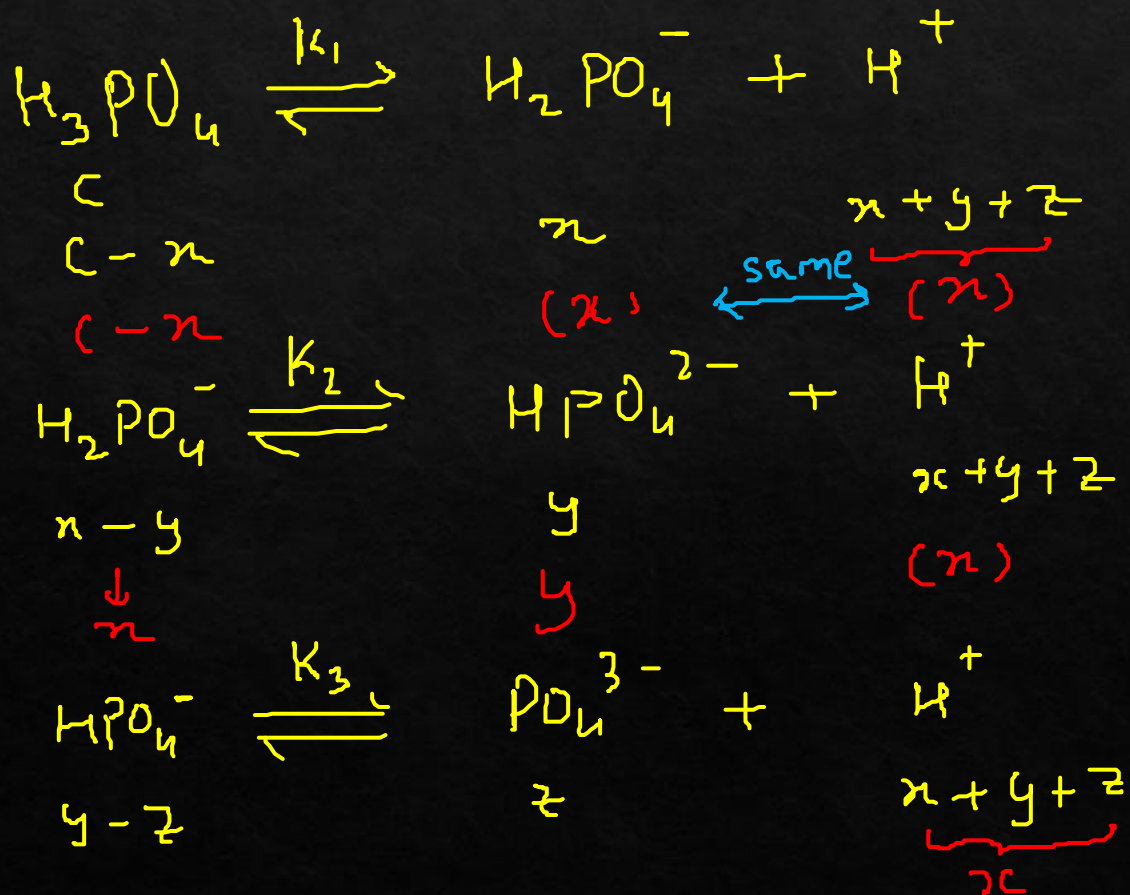 H₃PO₄ ⇌ K₁ H₂PO₄⁻ + H⁺
C
C - x x x + y + z
C - x (x) same (x)
H₂PO₄⁻ ⇌ K₂ HPO₄²⁻ + H⁺
x - y y x + y + z
↓ (x)
x y
HPO₄⁻ ⇌ K₃ PO₄³⁻ + H⁺
y - z z x + y + z
x